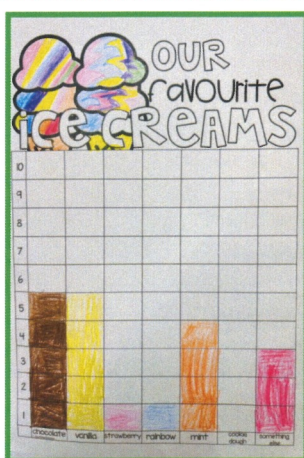 OUR
favourite
ice CREAMS
10
9
8
7
6
5
4
3
2
1
chocolate vanilla strawberry rainbow mint cookie dough something else